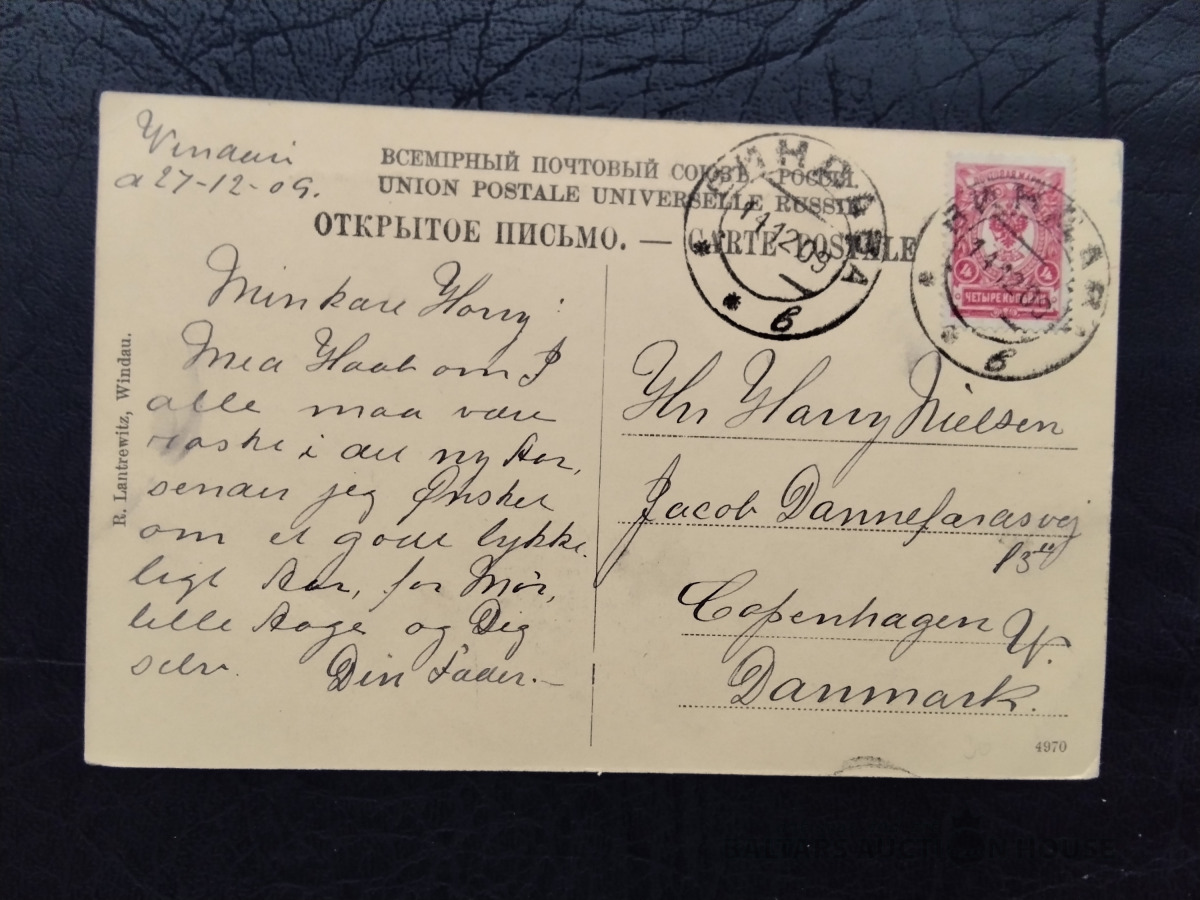 Windau
d 27-12-09.
ВСЕМІРНЫЙ ПОЧТОВЫЙ СОЮЗЪ. РОССІЯ.
UNION POSTALE UNIVERSELLE RUSSIE
ОТКРЫТОЕ ПИСЬМО. — CARTE POSTALE
ВИНДАВА
14 12 09
в
ВИНДАВА
14 12 09
в
4 4
ЧЕТЫРЕ КОПѢЙКИ
R. Lantrewitz, Windau.
Min kære Harry!
Med Haab om I
alle maa være
raske i det ny Aar,
sender jeg Ønsket
om et godt lykke-
ligt Aar, for Mor,
lille Aage og Dig
selv. Din Fader.—
Hr Harry Nielsen
Jacob Dannefærdsvej
Copenhagen V.
Danmark.
4970
BALTARS AUCTION HOUSE